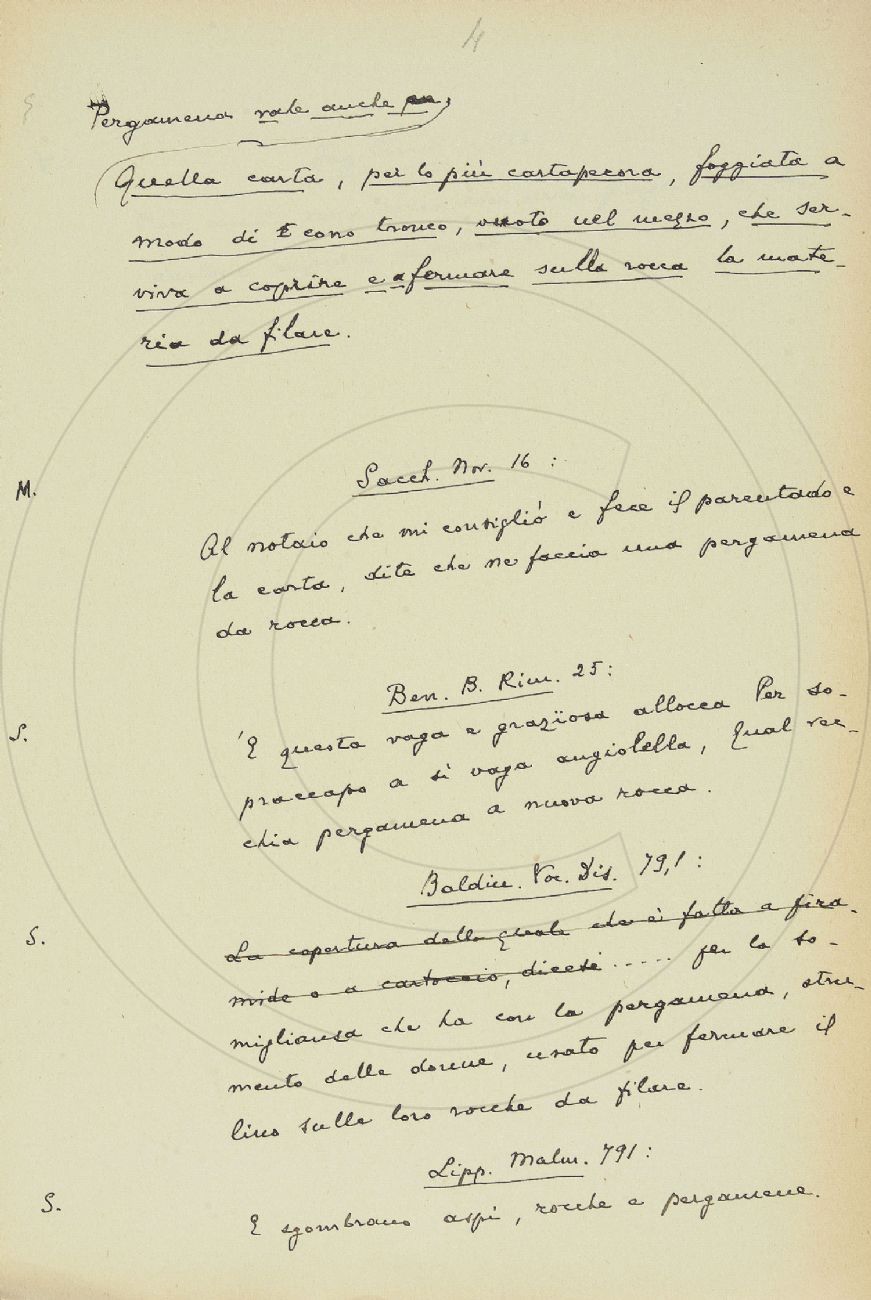 4
Pergamena vale anche
Quella carta, per lo più cartapecora, foggiata a
modo di cono tronco, vuoto nel mezzo, che ser-
viva a coprire e a fermare sulla rocca la mate-
ria da filare.
Sacch. Nov. 16:
M.
Al notaio che mi consigliò e fece il parentado e
la carta, dite che ne faccia una pergamena
da rocca.
Ben. B. Rim. 25:
S.
'E questa vaga e grazïosa allocca Per so-
praccapo a sì vaga angiolella, Qual vec-
chia pergamena a nuova rocca.
Baldin. Voc. Dis. 79,1:
S.
La copertura della quale che è fatta a pira-
mide o a cartoccio, dicesi..... per la so-
miglianza che ha con la pergamena, stru-
mento delle donne, usato per fermare il
lino sulle loro rocche da filare.
Lipp. Malm. 791:
S.
E sgombrano aspi, rocche e pergamene.